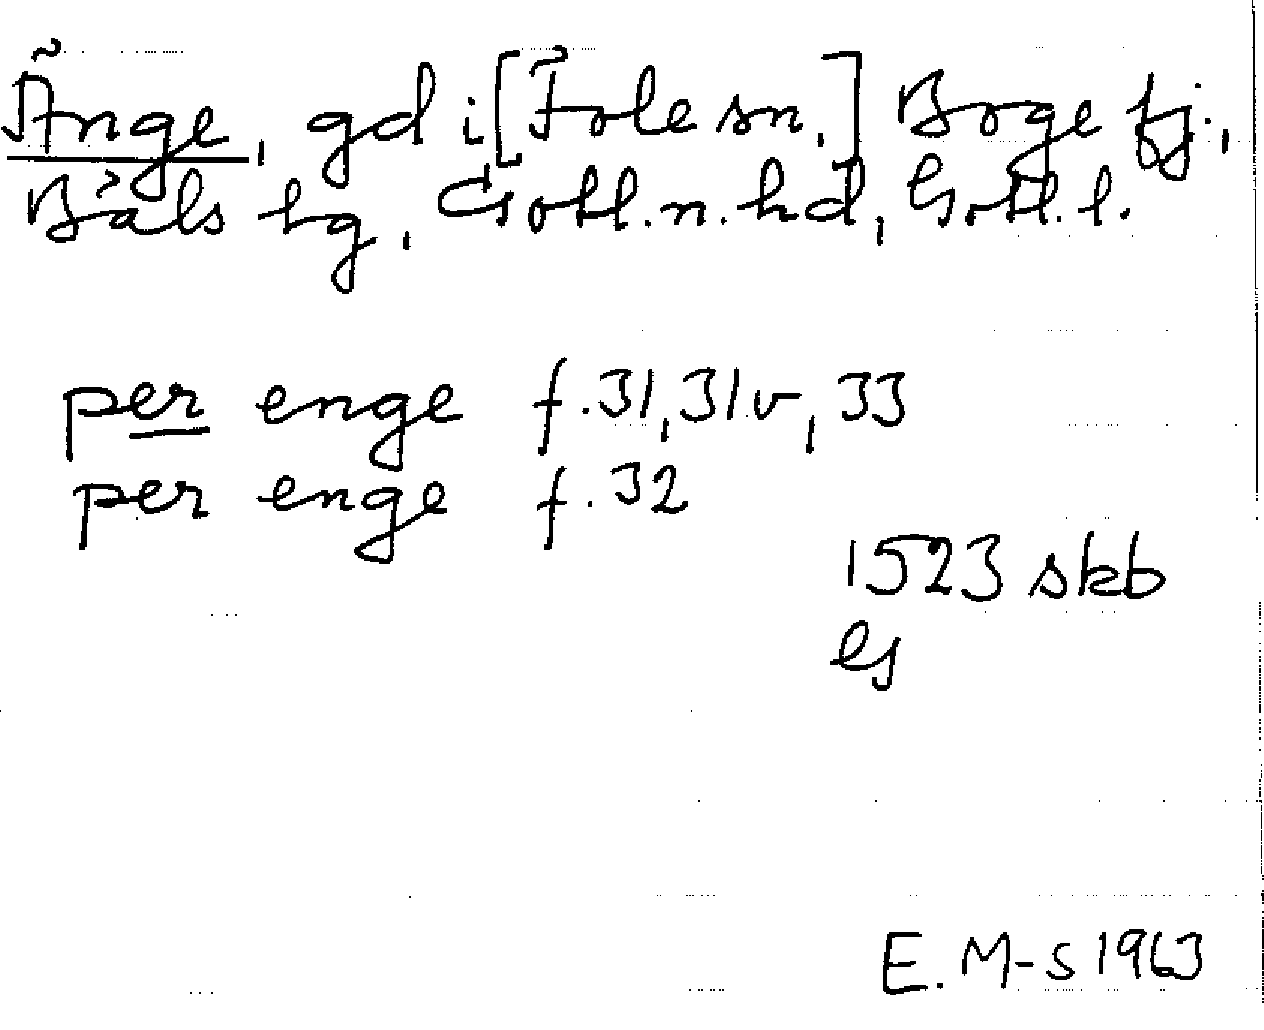 Änge, gd i [Fole sn,] Broge tj.,
Bäls hg, Gotl. n. hd, Gotl. l.
per enge f. 31, 31 v, 33
per enge f. 32
1523 skb
E. M-s 1963